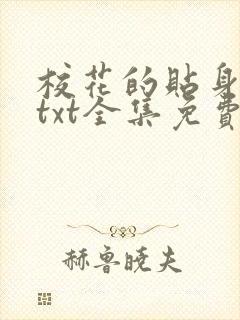 校花的貼身
txt全集免費
赫魯曉夫